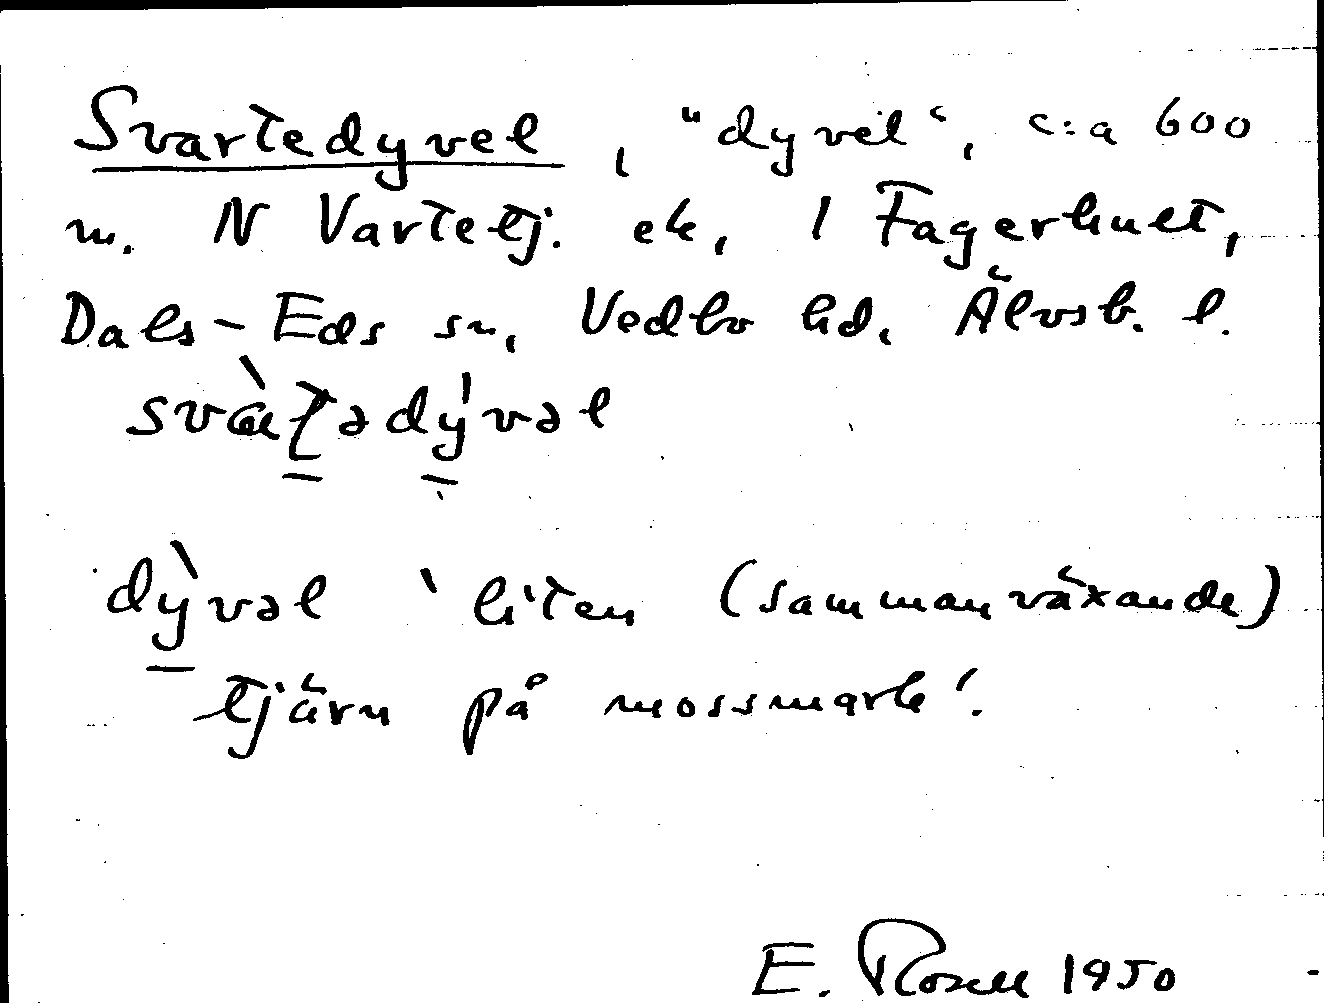 Svartedyvel, "dyvel", c:a 600
m. N Vartetj. ek, 1 Fagerhult,
Dals-Eds sn, Vedbo hd, Älvsb. l.
svàʈədy̍vəl
dỳvəl 'liten (sammanväxande)
tjärn på mossmark'.
E. Rosell 1950